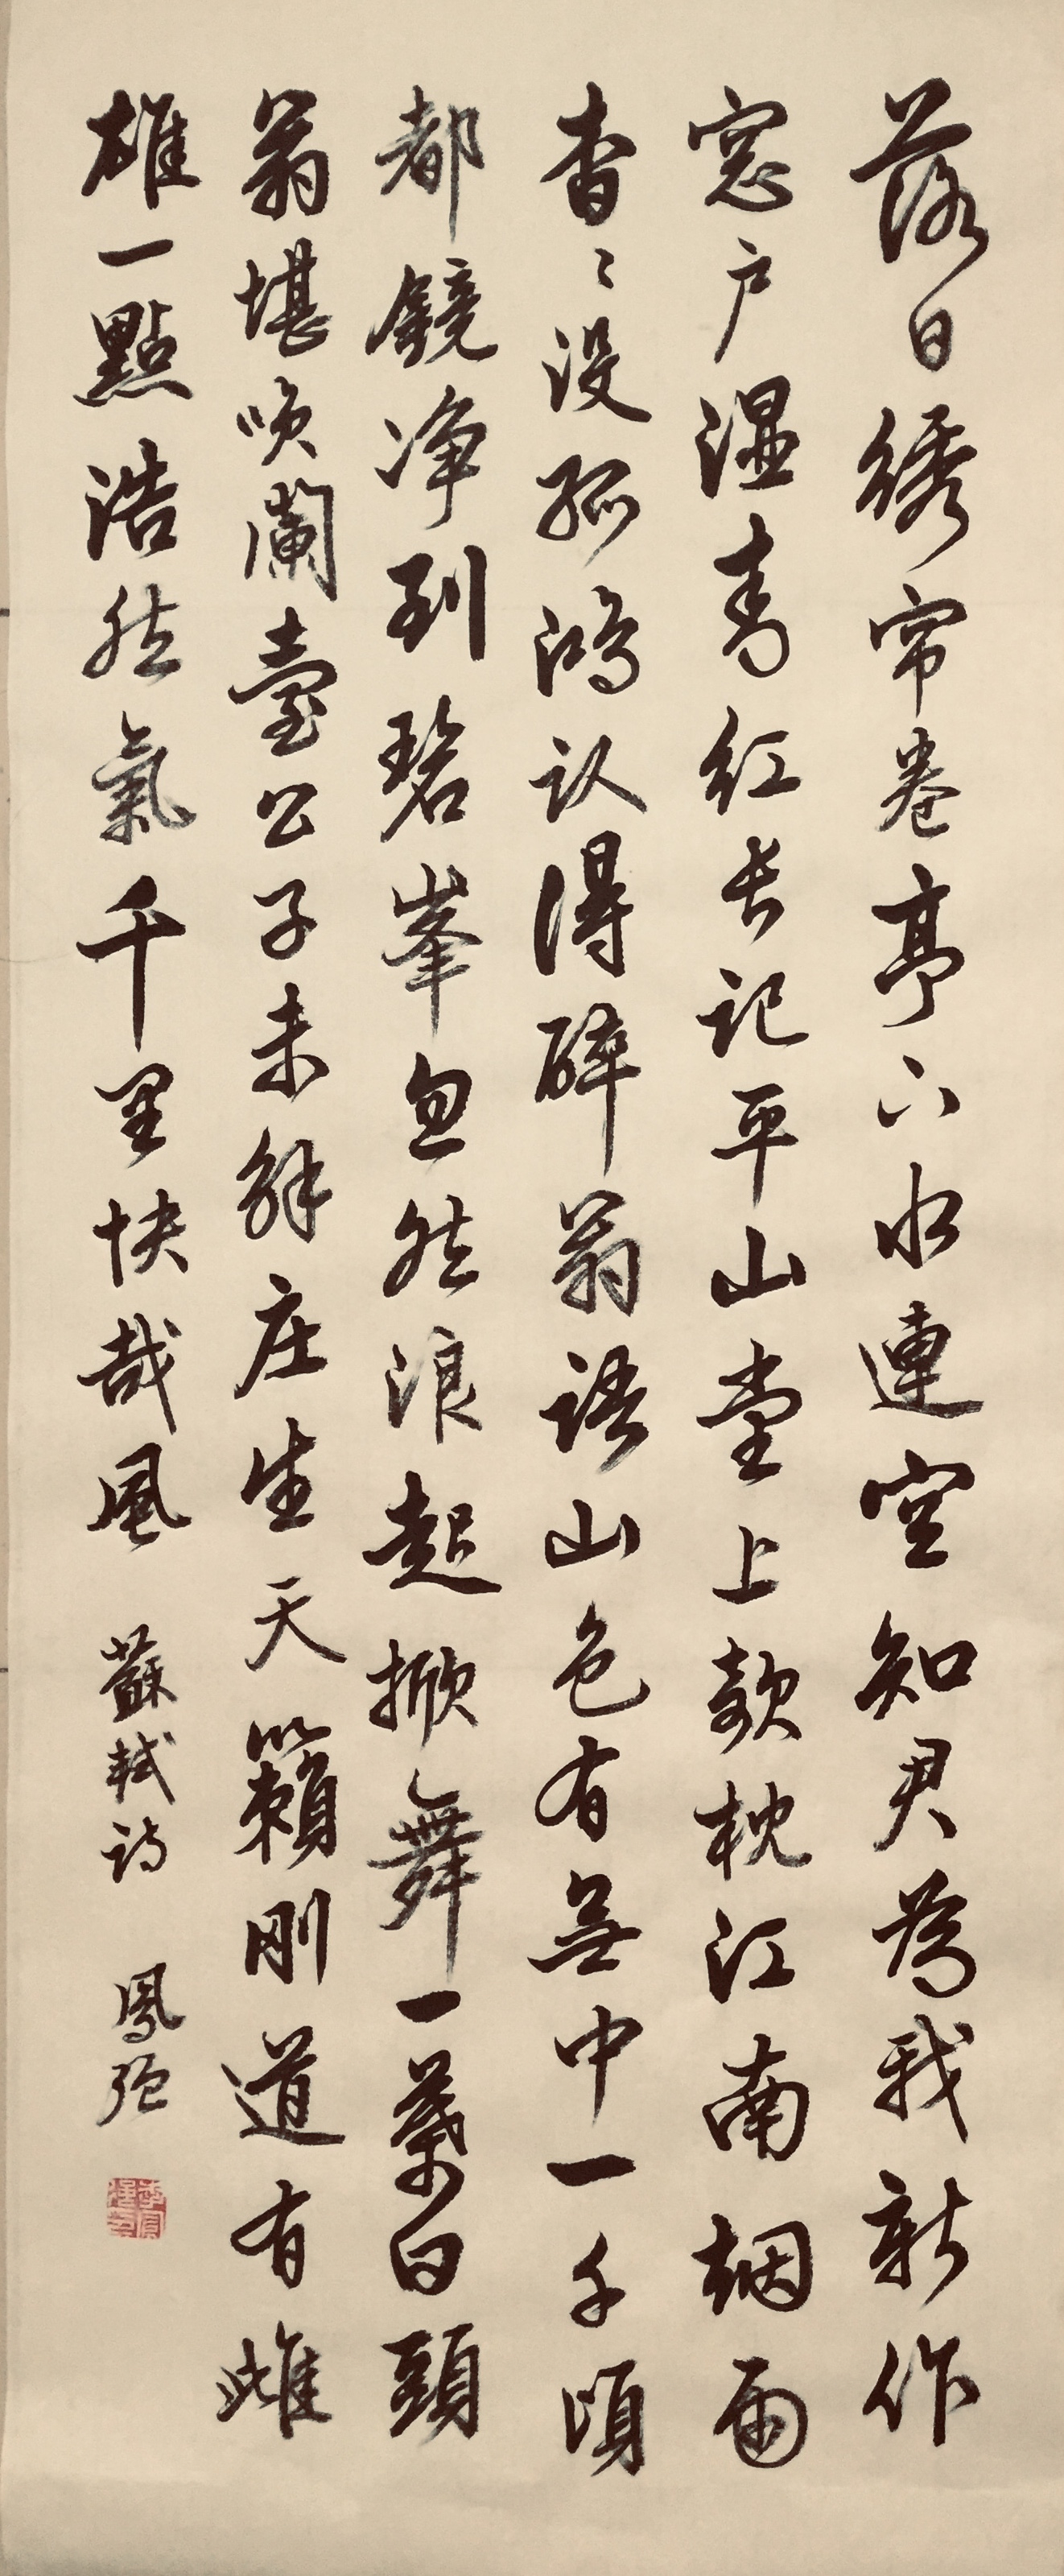 落日绣帘卷亭下水連空知君為我新作
窓户湿青红长记平山堂上欹枕江南烟雨
杳〻没孤鸿认得醉翁语山色有無中一千頃
都鏡净到碧峯忽然浪起掀舞一葉白頭
翁堪唤蘭臺公子未解庄生天籟刚道有雌
雄一點浩然氣千里快哉風
蘇軾诗
鳳强